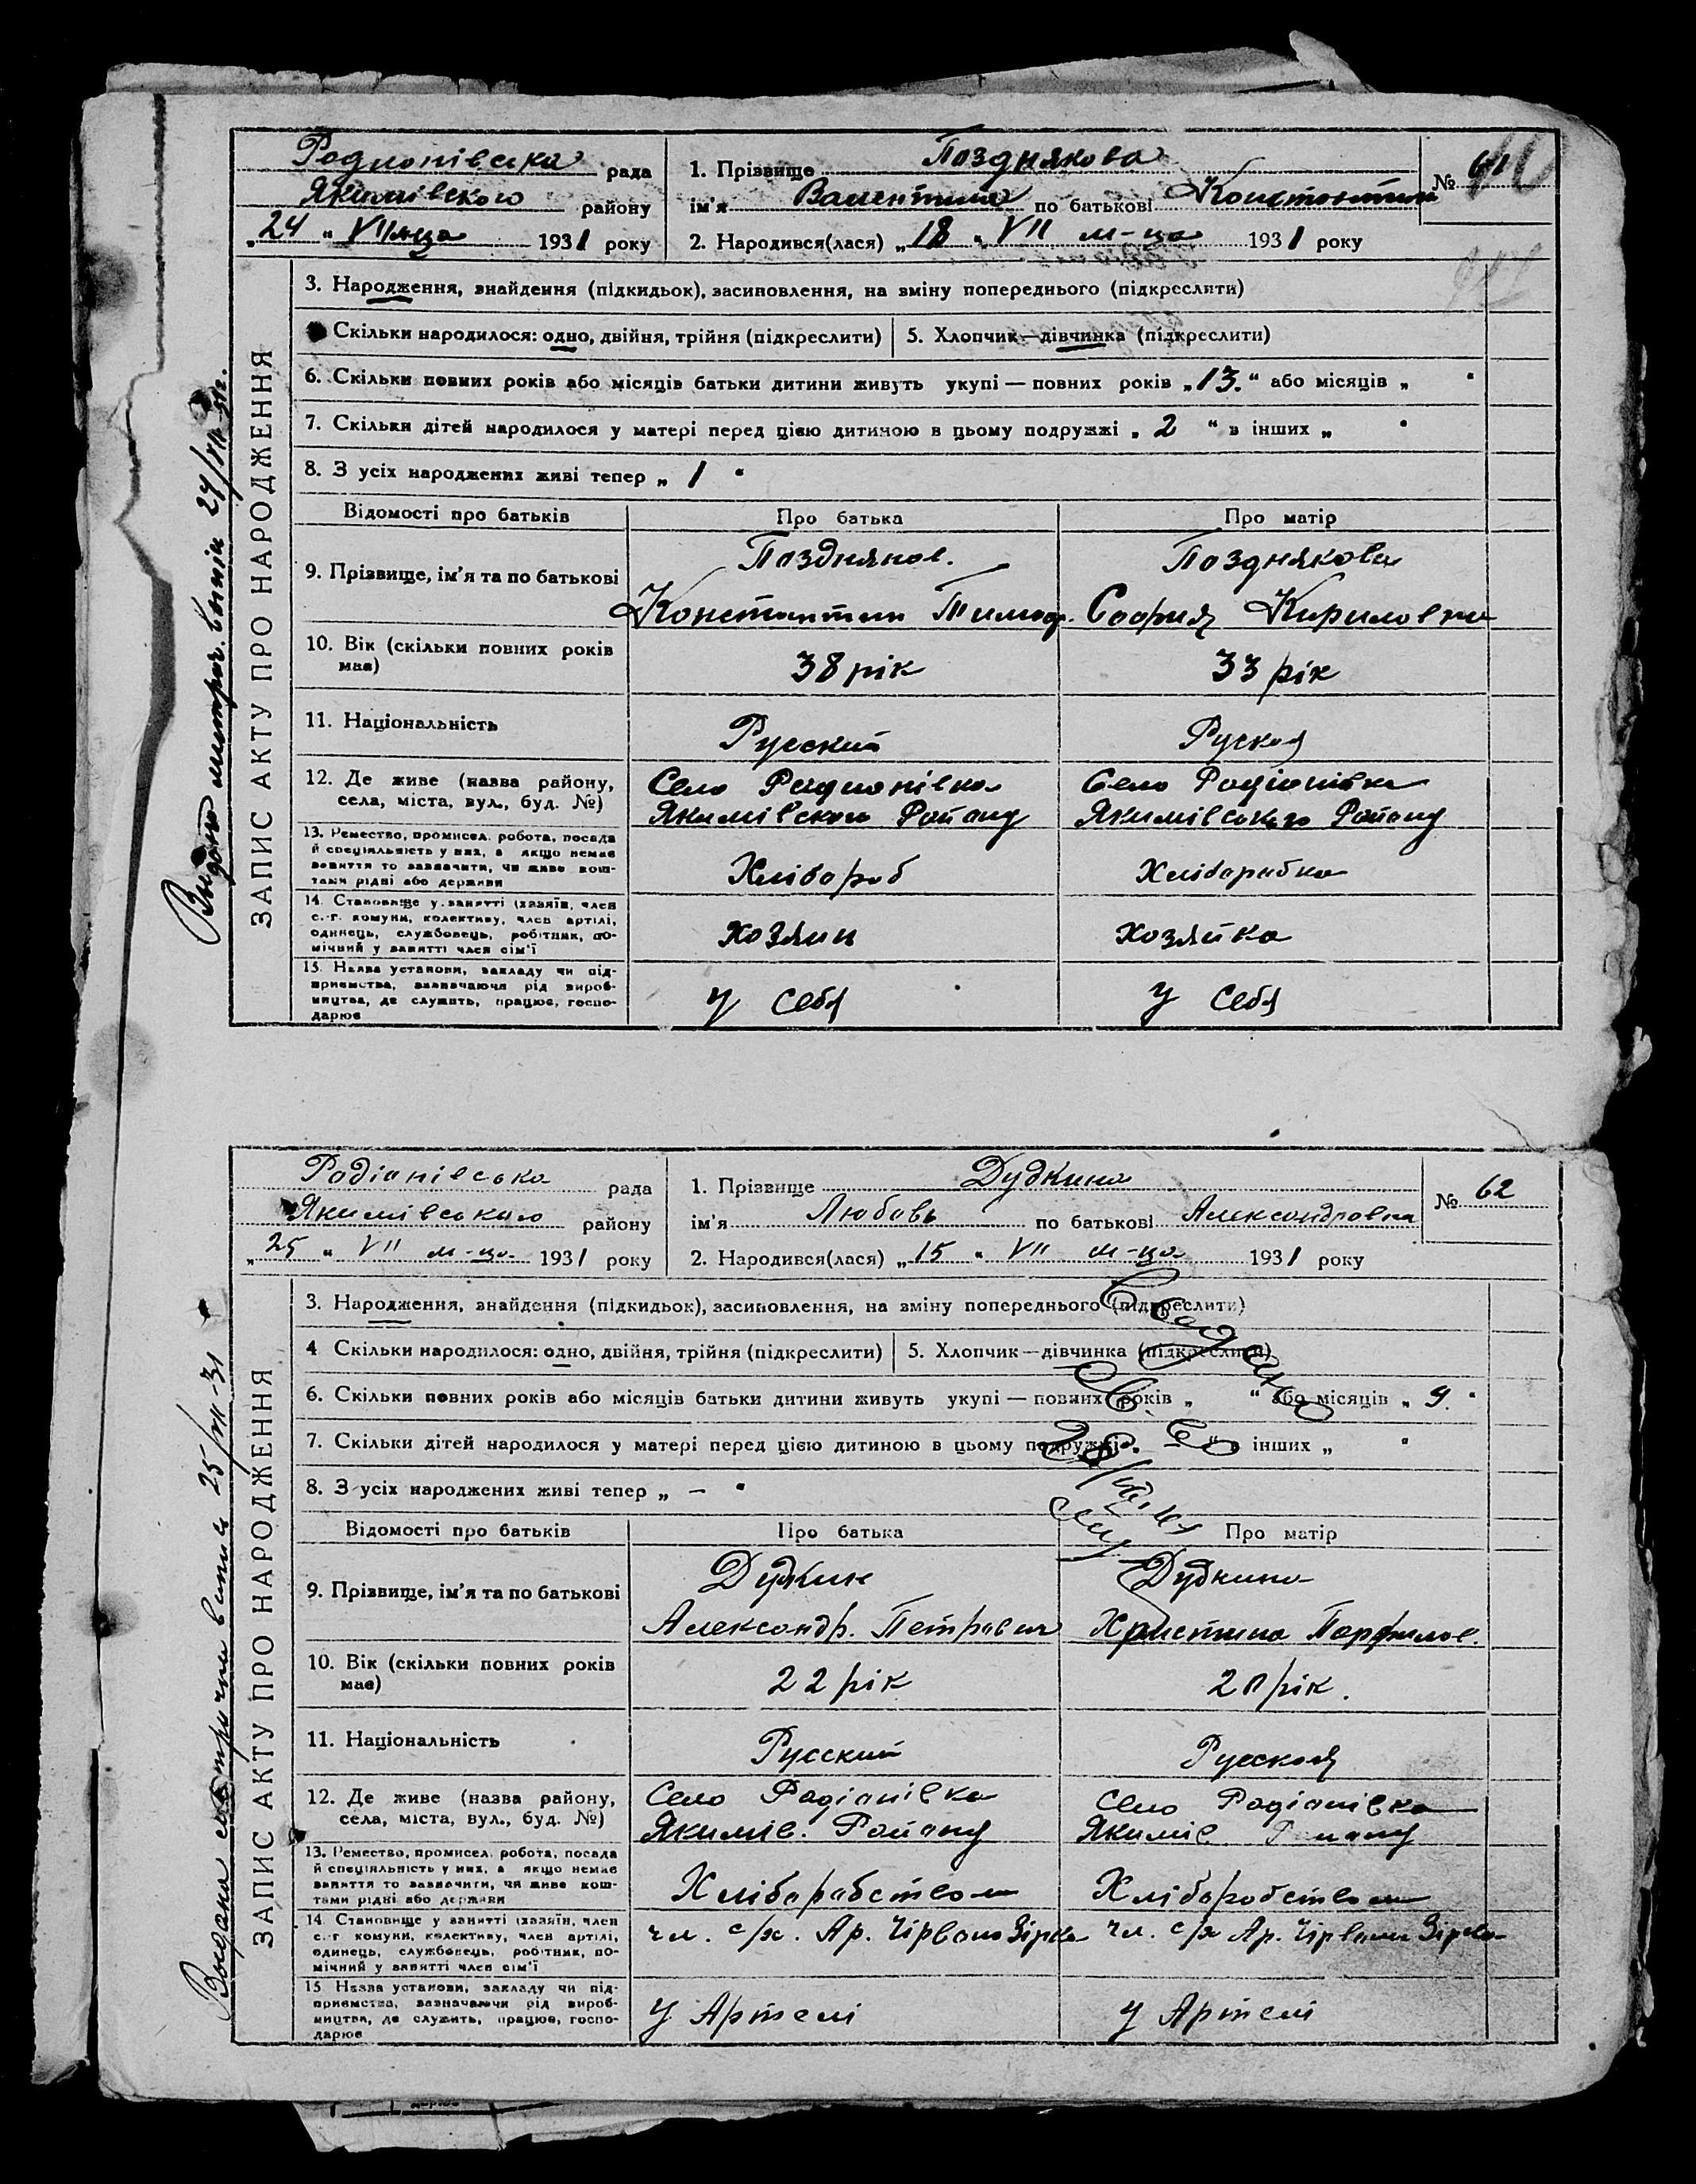 Родионівська рада
Якимівского району
„24“ VII м-ца 1931 року
1. Прізвище Позднякова
ім'я Валентина по батькові Константин
№ 61
2. Народився(лася) „18“ VII м-ца 1931 року
ЗАПИС АКТУ ПРО НАРОДЖЕННЯ
3. Народження, знайдення (підкидьок), засиновлення, на зміну попереднього (підкреслити)
Скільки народилося: одно, двійня, трійня (підкреслити) 5. Хлопчик—дівчинка (підкреслити)
6. Скільки повних років або місяців батьки дитини живуть укупі — повних років „13.“ або місяців „ “
7. Скільки дітей народилося у матері перед цією дитиною в цьому подружжі „ 2 “ в інших „ “
8. З усіх народжених живі тепер „ 1 “
Відомості про батьків Про батька Про матір
9. Прізвище, ім'я та по батькові
Поздняков.
Константин Тимоф.
Позднякова
София Кириловна
10. Вік (скільки повних років
має)
38 рік
33 рік
11. Національність Русский Руская
12. Де живе (назва району,
села, міста, вул., буд. №)
Село Родионівка
Якимівского Району
Село Родіонівка
Якимівського Району
13. Ремество, промисел, робота, посада
й спеціяльність у них, а якщо немає
заняття то зазначити, чи живе кош-
тами рідні або держави
Хлібороб
Хліборобка
14. Становище у занятті (хазяїн, член
с.-г. комуни, колективу, член артілі,
одинець, службовець, робітник, по-
мічний у занятті член сім'ї
хозяин
хозяйка
15. Назва установи, закладу чи під-
приємства, зазначаючи рід вироб-
ництва, де служить, працює, госпо-
дарює
у себя
у себя
Родіонівська рада
Якимівського району
„25“ VII м-ца 1931 року
1. Прізвище Дудкина
ім'я Любовь по батькові Александровна
№ 62
2. Народився(лася) „15“ VII м-ца 1931 року
Видана 25/VII-31
ЗАПИС АКТУ ПРО НАРОДЖЕННЯ
3. Народження, знайдення (підкидьок), засиновлення, на зміну попереднього (підкреслити)
4 Скільки народилося: одно, двійня, трійня (підкреслити) 5. Хлопчик—дівчинка (підкреслити)
6. Скільки повних років або місяців батьки дитини живуть укупі — повних років „ “ або місяців „ 9. “
7. Скільки дітей народилося у матері перед цією дитиною в цьому подружжі „ – “ в інших „ “
8. З усіх народжених живі тепер „ – “
Відомості про батьків Про батька Про матір
9. Прізвище, ім'я та по батькові
Дудкин
Александр. Петрович
Дудкина
Христина Парфилов.
10. Вік (скільки повних років
має)
22 рік
20 рік.
11. Національність Русский Русская
12. Де живе (назва району,
села, міста, вул., буд. №)
Село Родіонівка
Якимів. Району
Село Родіонівка
Якимів Району
13. Ремество, промисел, робота, посада
й спеціяльність у них, а якщо немає
заняття то зазначити, чи живе кош-
тами рідні або держави
Хліборобством
Хліборобством
14. Становище у занятті (хазяїн, член
с.-г комуни, колективу, член артілі,
одинець, службовець, робітник, по-
мічний у занятті член сім'ї
чл. с/х. Ар. Чірвона Зірка
чл. с/х Ар. Чірвона Зірка
15 Назва установи, закладу чи під-
приємства, зазначаючи рід вироб-
ництва, де служить, працює, госпо-
дарює
у Артелі
у Артелі